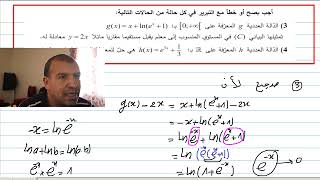 أجب بصح أو خطأ مع التبرير في كل حالة من الحالات التالية:
3) الدالة العددية g المعرفة على [0;+∞[ بـ: g(x) = x + ln(eˣ + 1)
تمثيلها البياني (C) في المستوي المنسوب إلى معلم يقبل مستقيما مقاربا مائلا y = 2x معادلة له
4) الدالة العددية h المعرفة على ℝ بـ: هي حل
③ صحيح لأن
g(x) - 2x = x + ln(eˣ+1) - 2x
= -x + ln(eˣ+1)
-x = ln e⁻ˣ
= ln e⁻ˣ + ln(eˣ+1)
ln a + ln b = ln(ab)
= ln(e⁻ˣ(eˣ+1))
e⁻ˣ × eˣ = 1
= ln(1 + e⁻ˣ)
e⁻ˣ → 0